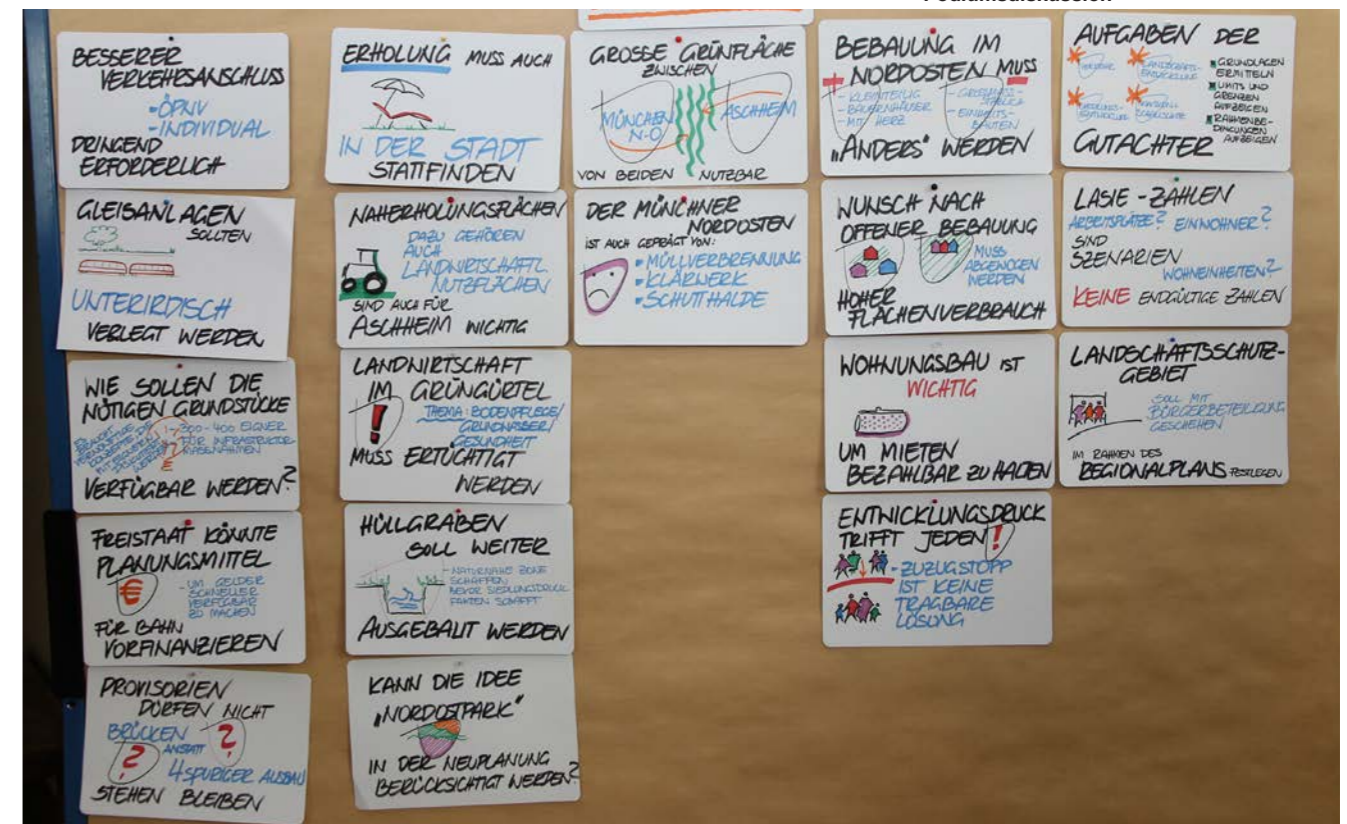 Podiumsdiskussion
BESSERER
VERKEHRSANSCHLUSS
- ÖPNV
- INDIVIDUAL
DRINGEND
ERFORDERLICH
GLEISANLAGEN
SOLLTEN
UNTERIRDISCH
VERLEGT WERDEN
WIE SOLLEN DIE
NÖTIGEN GRUNDSTÜCKE
300-400 EIGNER
FÜR INFRASTRUKTUR
MASSNAHMEN
VERFÜGBAR WERDEN?
FREISTAAT KÖNNTE
PLANUNGSMITTEL
€
- UM GELDER
SCHNELLER
VERFÜGBAR
ZU MACHEN
FÜR BAHN
VORFINANZIEREN
PROVISORIEN
DÜRFEN NICHT
BRÜCKEN ?
? ANSTATT
4 SPURIGER AUSBAU
STEHEN BLEIBEN
ERHOLUNG MUSS AUCH
IN DER STADT
STATTFINDEN
NAHERHOLUNGSFLÄCHEN
DAZU GEHÖREN
AUCH
LANDWIRTSCHAFTL.
NUTZFLÄCHEN
SIND AUCH FÜR
ASCHHEIM WICHTIG
LANDWIRTSCHAFT
IM GRÜNGÜRTEL
! THEMA: BODENPFLEGE/
GRUNDWASSER/
GESUNDHEIT
MUSS ERTÜCHTIGT
WERDEN
HÜLLGRABEN
SOLL WEITER
- NATURNAHE ZONE
SCHAFFEN
BEVOR SIEDLUNGSDRUCK
FAKTEN SCHAFFT
AUSGEBAUT WERDEN
KANN DIE IDEE
„NORDOSTPARK"
IN DER NEUPLANUNG
BERÜCKSICHTIGT WERDEN?
GROSSE GRÜNFLÄCHE
ZWISCHEN
MÜNCHEN
N-O
ASCHHEIM
VON BEIDEN NUTZBAR
DER MÜNCHNER
NORDOSTEN
IST AUCH GEPRÄGT VON:
- MÜLLVERBRENNUNG
- KLÄRWERK
- SCHUTTHALDE
BEBAUUNG IM
NORDOSTEN MUSS
- KLEINTEILIG
- BAUERNHÄUSER
- MIT HERZ
- EINHEITS-
BAUTEN
„ANDERS" WERDEN
WUNSCH NACH
OFFENER BEBAUUNG
MUSS
ABGEWOGEN
WERDEN
HOHER
FLÄCHENVERBRAUCH
WOHNUNGSBAU IST
WICHTIG
UM MIETEN
BEZAHLBAR ZU HALTEN
ENTWICKLUNGSDRUCK
TRIFFT JEDEN!
- ZUZUGSTOPP
IST KEINE
TRAGBARE
LÖSUNG
AUFGABEN DER
LANDSCHAFTS-
ENTWICKLUNG
GRUNDLAGEN
ERMITTELN
LIMITS UND
GRENZEN
AUFZEIGEN
RAHMENBE-
DINGUNGEN
AUFZEIGEN
GUTACHTER
LASIE - ZAHLEN
ARBEITSPLÄTZE? EINWOHNER?
SIND
SZENARIEN
WOHNEINHEITEN?
KEINE ENDGÜLTIGE ZAHLEN
LANDSCHAFTSSCHUTZ-
GEBIET
SOLL MIT
BÜRGERBETEILIGUNG
GESCHEHEN
IM RAHMEN DES
REGIONALPLANS FESTLEGEN